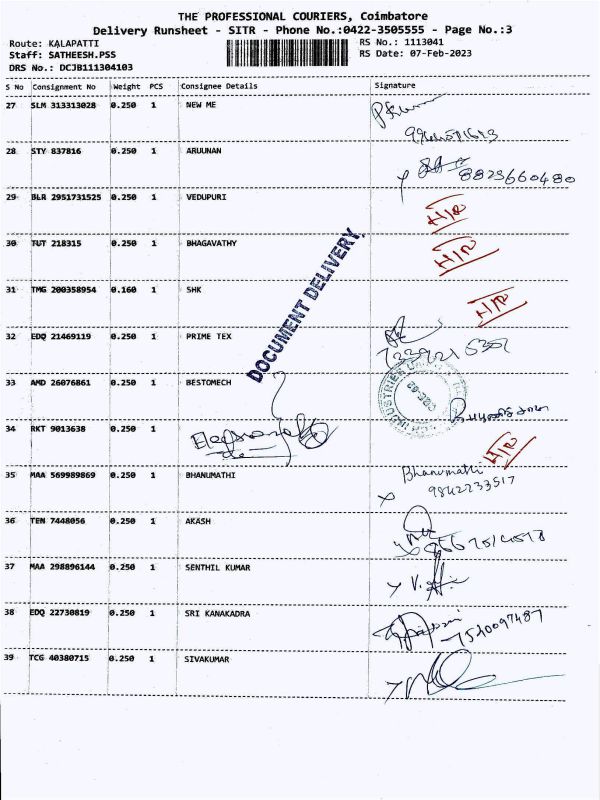 THE PROFESSIONAL COURIERS, Coimbatore
Delivery Runsheet - SITR - Phone No.:0422-3505555 - Page No.:3
Route: KALAPATTI RS No.: 1113041
Staff: SATHEESH.PSS RS Date: 07-Feb-2023
DRS No.: DCJB111304103
S No Consignment No Weight PCS Consignee Details Signature
27 SLM 313313028 0.250 1 NEW ME
28 STY 837816 0.250 1 ARUUNAN
8825660480
29 BLR 2951731525 0.250 1 VEDUPURI
30 TUT 218315 0.250 1 BHAGAVATHY
31 TMG 200358954 0.160 1 SHK
DOCUMENT DELIVERY
32 EDQ 21469119 0.250 1 PRIME TEX
33 AMD 26076861 0.250 1 BESTOMECH
34 RKT 9013638 0.250 1
35 MAA 569989869 0.250 1 BHANUMATHI Bhanumathi
9842233517
36 TEN 7448056 0.250 1 AKASH
37 MAA 298896144 0.250 1 SENTHIL KUMAR
38 EDQ 22730819 0.250 1 SRI KANAKADRA
7540097487
39 TCG 40380715 0.250 1 SIVAKUMAR